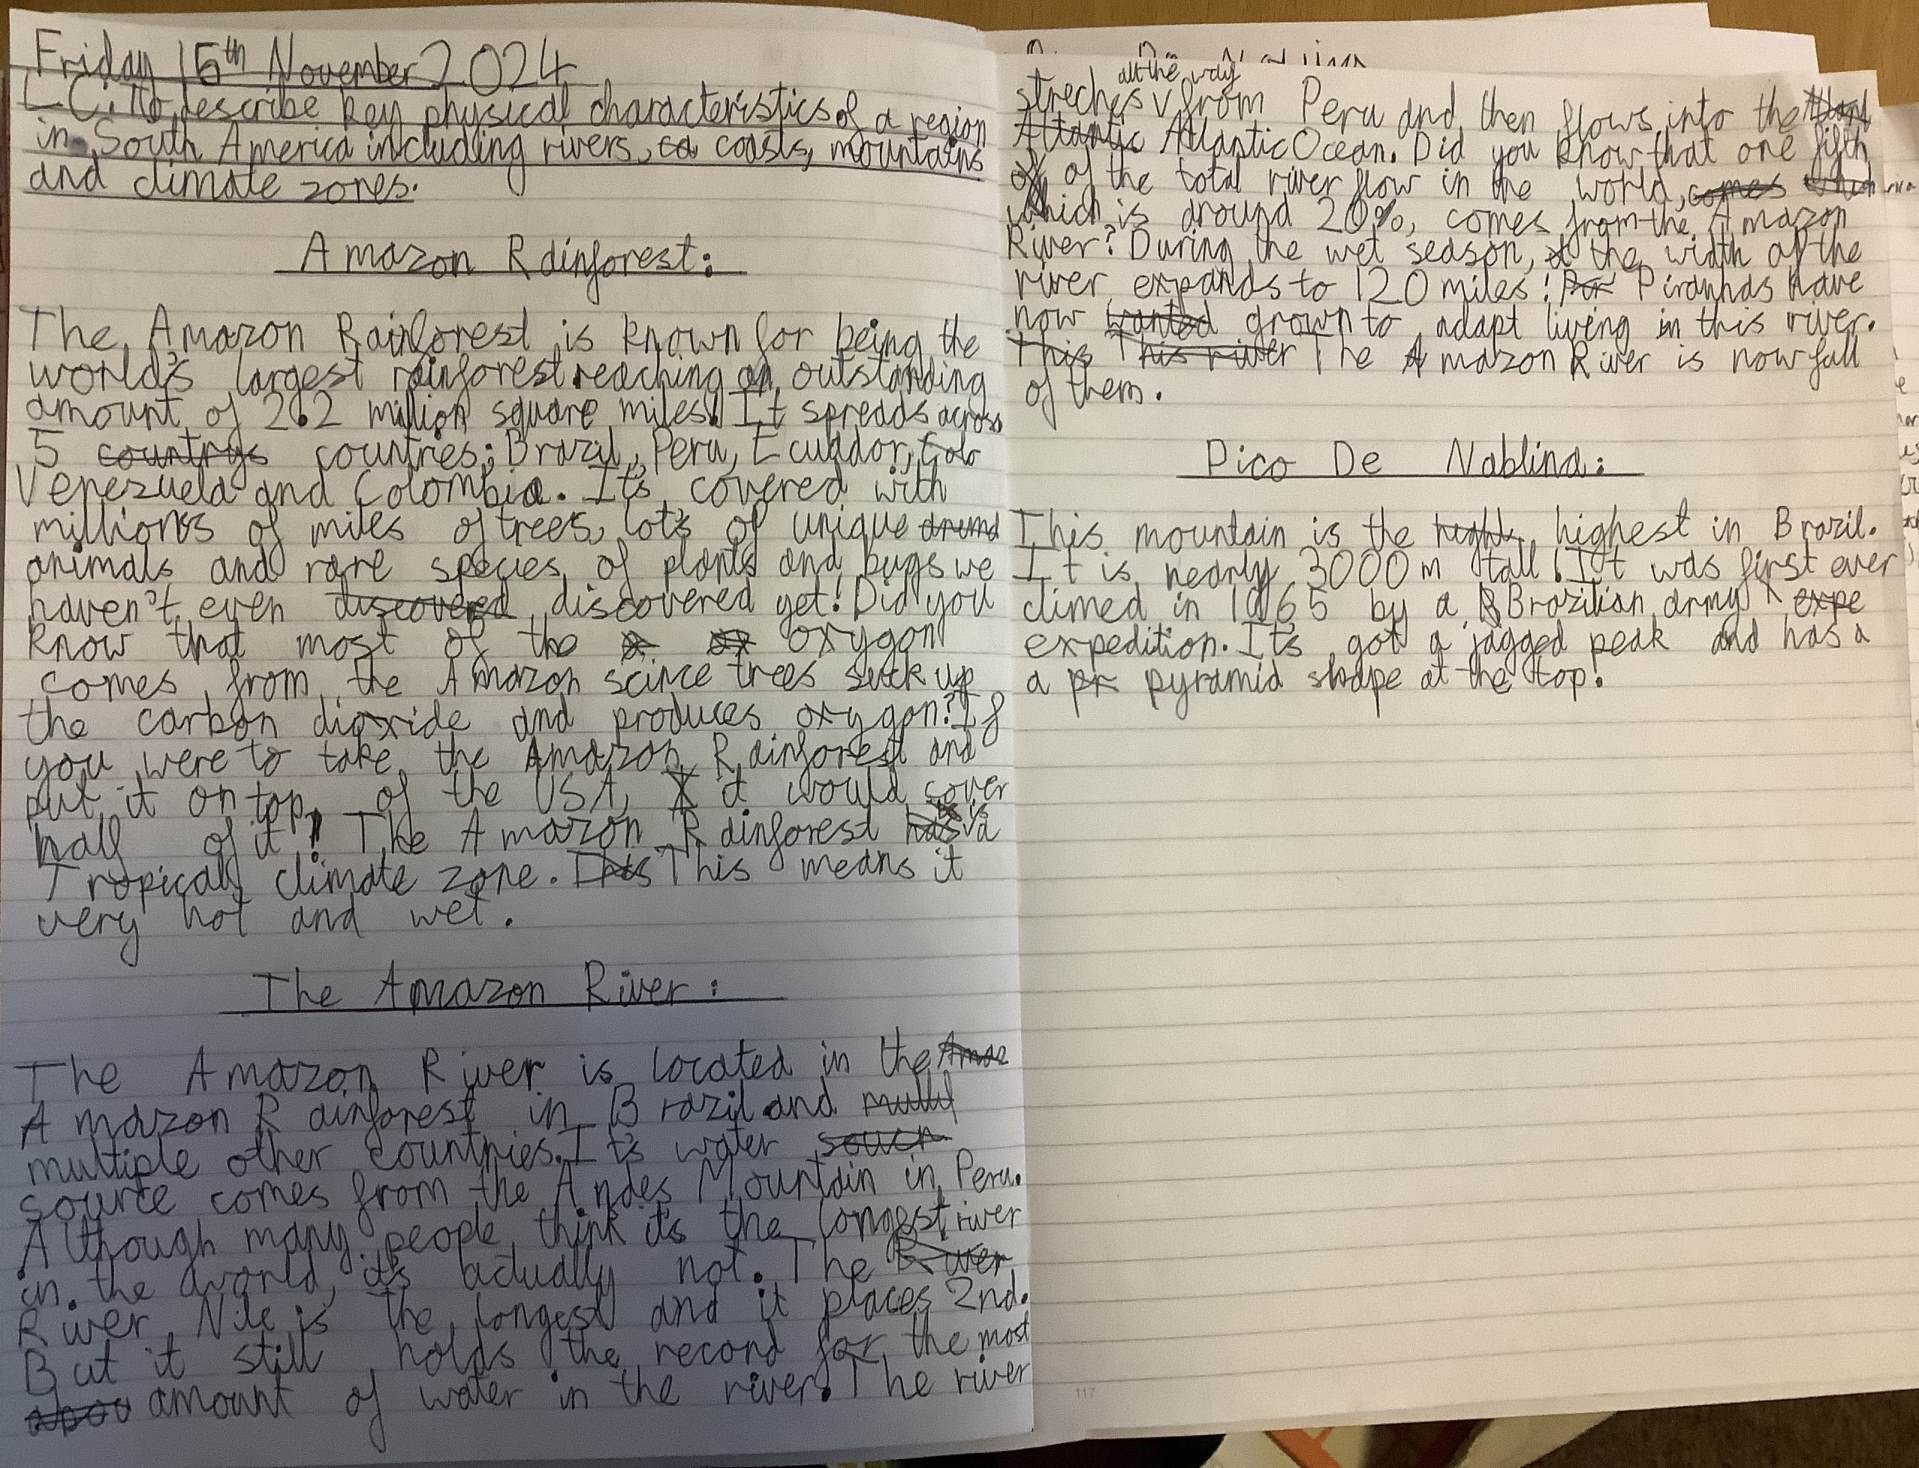 Friday 15th November 2024
LC: to describe key physical characteristics of a region
in South America including rivers, co coasts, mountains
and climate zones.
Amazon Rainforest:
The Amazon Rainforest is known for being the
world's largest rainforest reaching an outstanding
amount of 2.2 million square miles! It spreads across
5 countrys countries; Brazil, Peru, Ecuador, Colo
Venezuela and Colombia. It's covered with
millions of miles of trees, lot's of unique
animals and rare species of plants and bugs we
haven't even discovered discovered yet! Did you
know that most of the oxygon
comes from the Amazon scince trees suck up
the carbon dioxide and produces oxygon? If
you were to take the Amazon Rainforest and
put it on top of the USA, it would cover
half of it! The Amazon Rainforest has is a
Tropically climate zone. This This means it
very hot and wet.
The Amazon River:
The Amazon River is located in the Amaz
Amazon Rainforest in Brazil and
multiple other countries. It's water
source comes from the Andes Mountain in Peru.
Although many people think it's the longest river
in the world, it's actually not. The River
River Nile is the longest and it places 2nd.
But it still holds the record for the most
amount of water in the river. The river
streches all the way from Peru and then flows into the
Atlantic Ocean. Did you know that one fifth
of of the total river flow in the world, comes which
which is around 20%, comes from the Amazon
River? During the wet season, the width of the
river expands to 120 miles! Piranhas have
now wanted grown to adapt living in this river.
This This river The Amazon River is now full
of them.
Pico De Nablina:
This mountain is the highest in Brazil.
It is nearly 3000m tall! It was first ever
climed in 1965 by a Brazilian army expe
expedition. It's got a jagged peak and has a
a pyramid shape at the top.
117